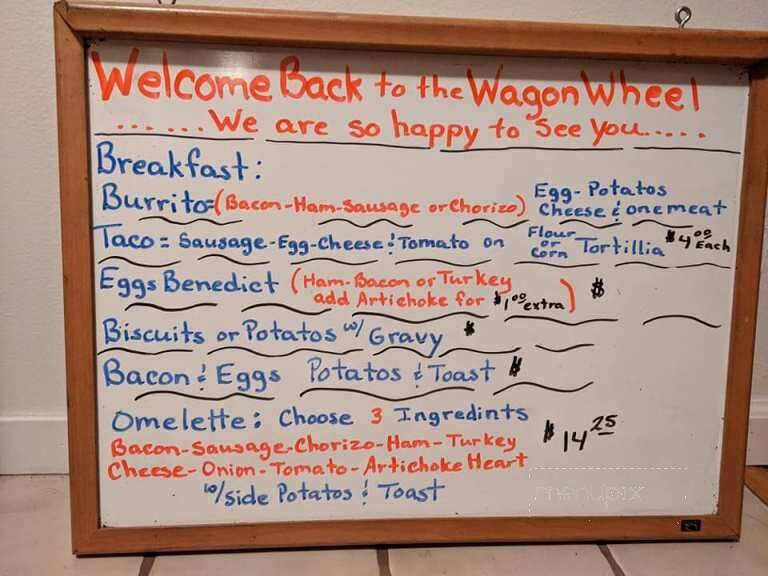 Welcome Back to the Wagon Wheel
......We are so happy to see you.....
Breakfast:
Burrito=(Bacon-Ham-Sausage or Chorizo) Egg-Potatos Cheese & one meat
Taco= Sausage-Egg-Cheese & Tomato on Flour or Corn Tortillia $4.00 Each
Eggs Benedict (Ham-Bacon or Turkey add Artichoke for $1.00 extra) $
Biscuits or Potatos w/ Gravy $
Bacon & Eggs Potatos & Toast $
Omelette: Choose 3 Ingredints $14.25
Bacon-Sausage-Chorizo-Ham-Turkey
Cheese-Onion-Tomato-Artichoke Heart
w/side Potatos & Toast
menupix